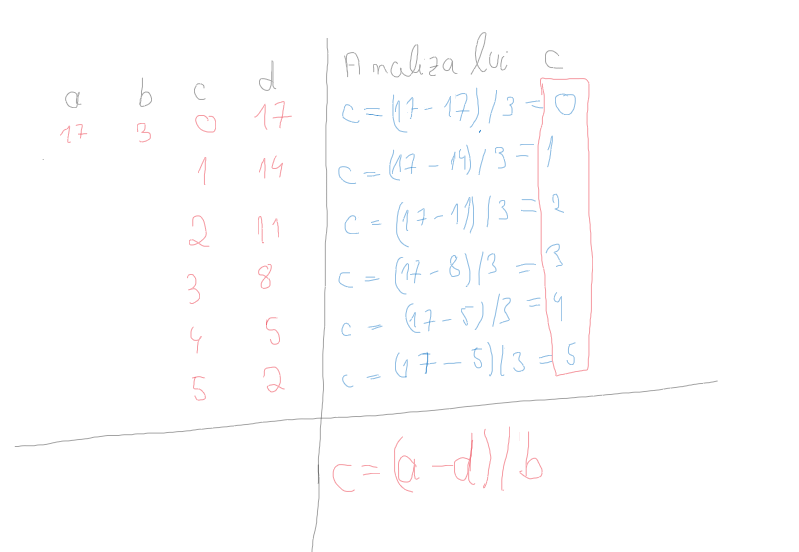 a b c d
17 3 0 17
1 14
2 11
3 8
4 5
5 2
Analiza lui c
c=(17-17)/3=0
c=(17-14)/3=1
c=(17-11)/3=2
c=(17-8)/3=3
c=(17-5)/3=4
c=(17-5)/3=5
c=(a-d)/b